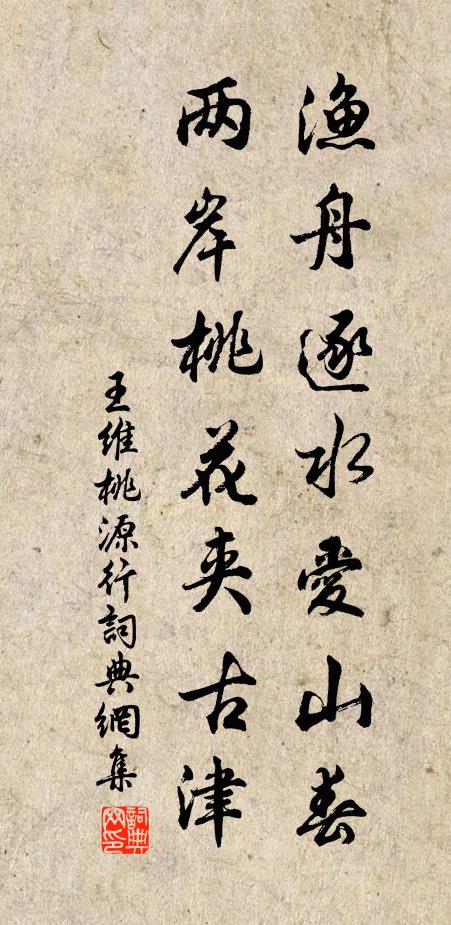 渔舟逐水愛山春
两岸桃花夹古津
王维桃源行詞典網集
詞典网印